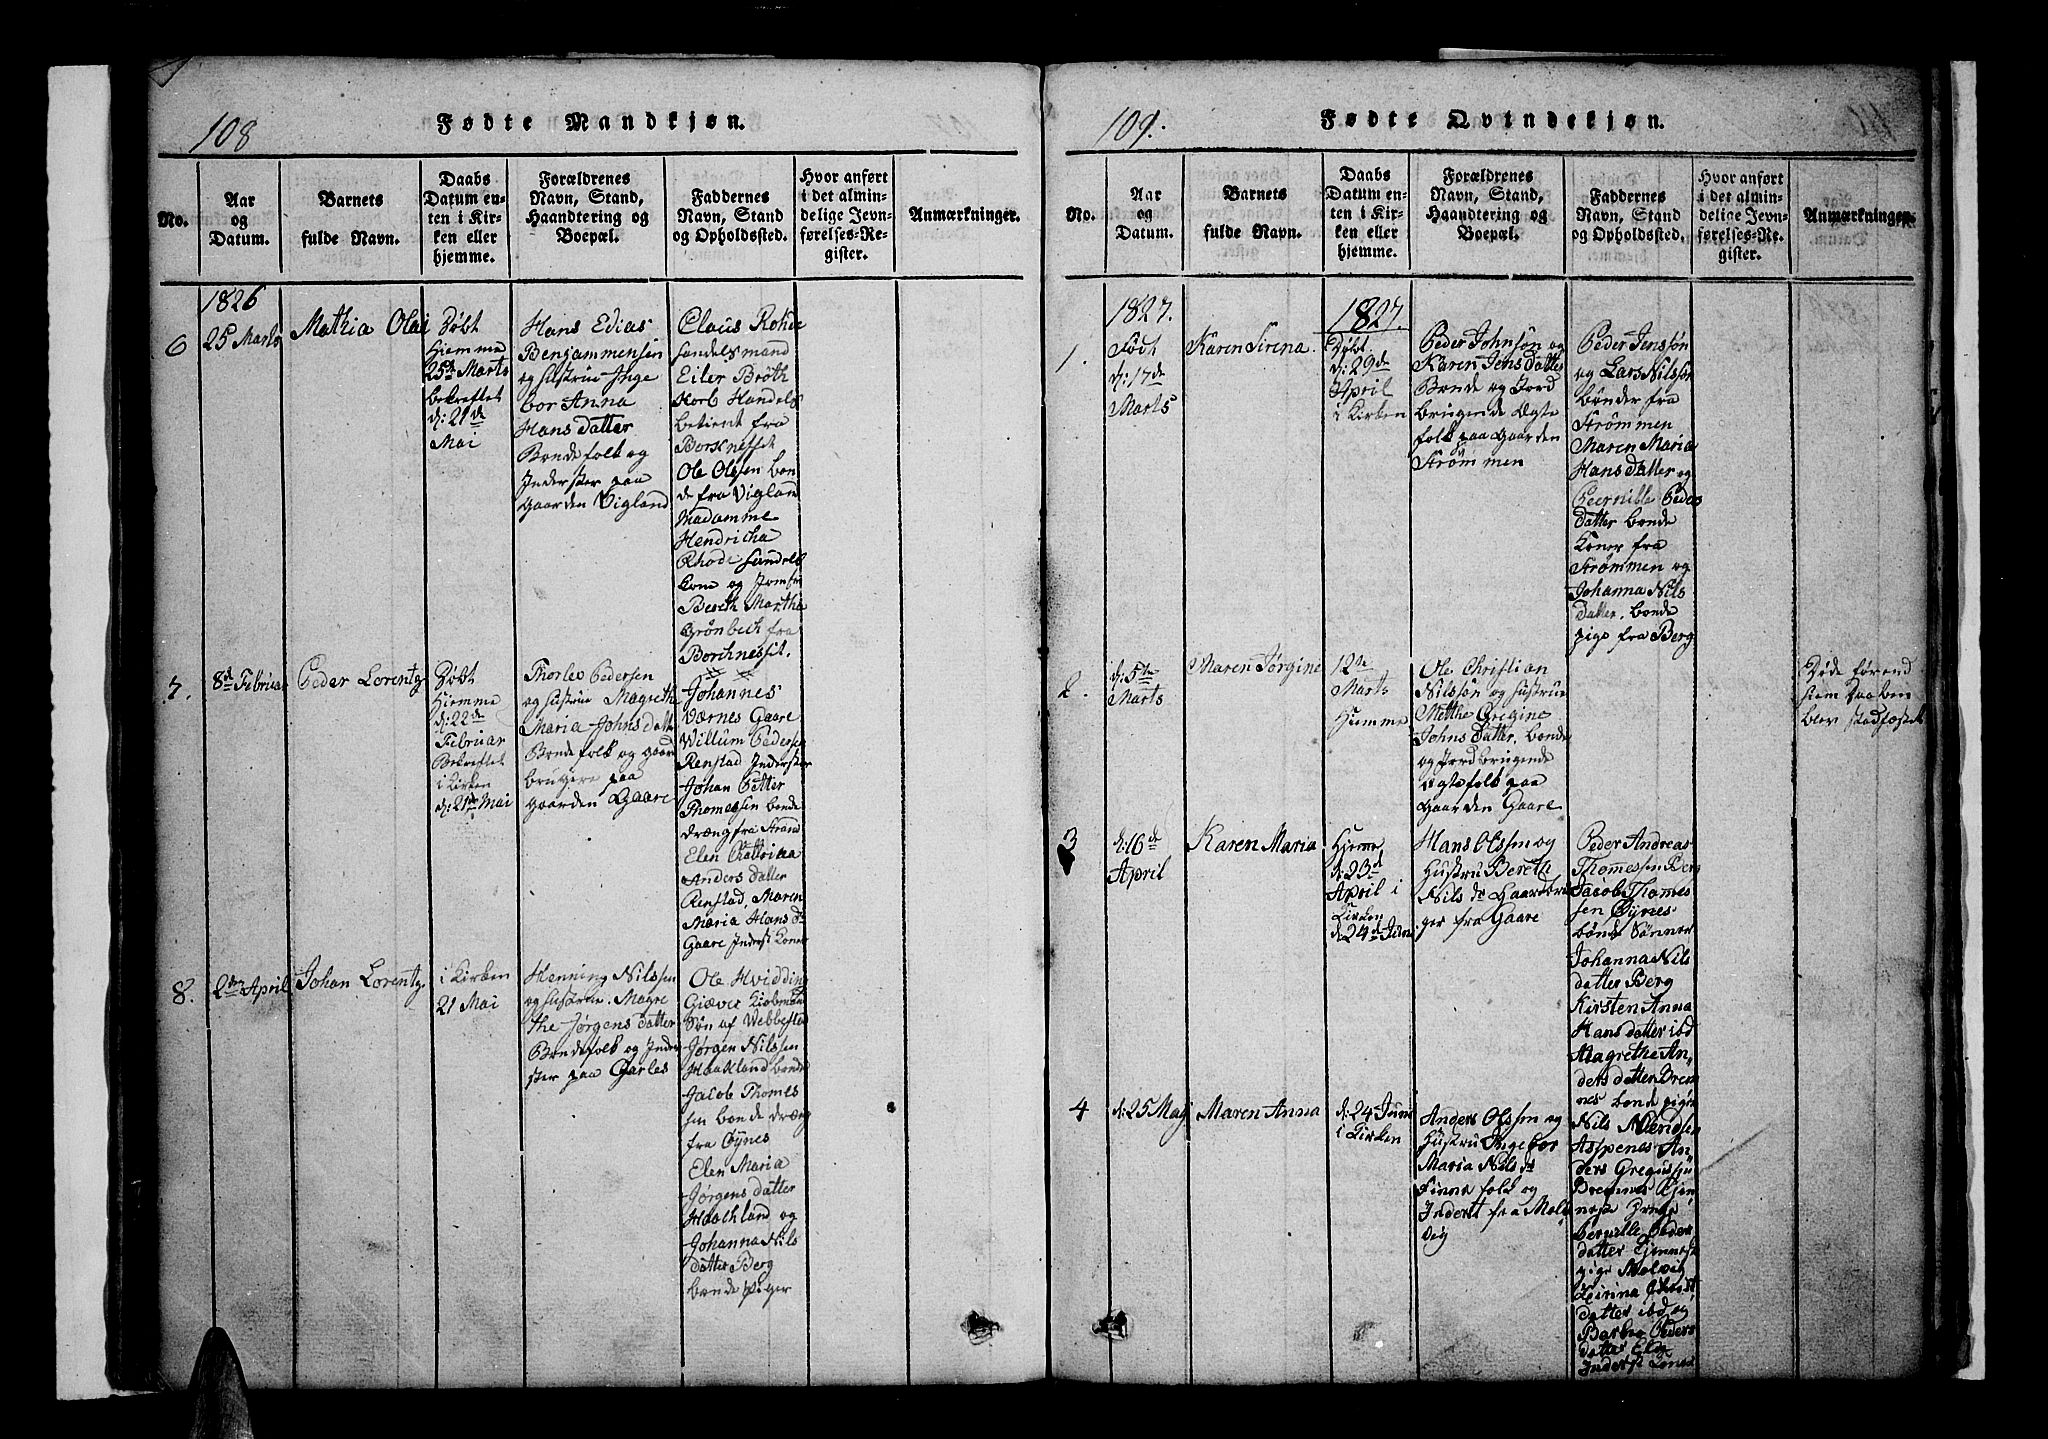 108
Fødte Mandkjøn.
No.
Aar
og
Datum.
Barnets
fulde Navn.
Daabs
Datum en-
ten i Kir-
ken eller
hjemme.
Forældrenes
Navn, Stand,
Haandtering og
Boepæl.
Faddernes
Navn, Stand
og Opholdssted.
Hvor anført
i det almin-
delige Jevn-
førelses-Re-
gister.
Anmærkninger.
1826
6
25 Marts
Mathia Olai
Døbt
Hiemme
25de Marts
bekreftet
d: 21de
Mai
Hans Edias
Benjammensen
og Hustrue Inge
bor Anna
Hans datter
Bondefolk og
Inderster paa
Gaarden Vigland
Claus Rohde
Handelsmand
Eiler Broth
Korb Handels
betient fra
Borknesset
Ole Olssen bon
de fra Vigland
Madamme
Hendricha
Rhode Handels
Kone og Jomfru
Bereth Martha
Grønbech fra
Borchnessit.
7.
8de Februar
Peder Lorentz
Døbt
Hiemme
d: 22de
Februar
Bekreftet
i Kirken
d: 21de Mai
Thorlev Pedersen
og Hustrue Magretha
Maria Johnsdatter
Bondefolk og Gaard
brugere paa
Gaarden Gaare
Johannes
Værnes Gaare
Willum Pedersen
Renstad Inderster
Johan Petter
Thomessen bonde
dræng fra Strand
Elen Cathrina
Anders datter
Renstad, Maren
Maria Hans dr
Gaare Inderst Koner
8.
2den April
Johan Lorentz.
i Kirken
21 Mai
Henning Nilssen
og Hustrue Magre
the Jørgens datter
Bondefolk og Inder
ster paa Carles
Ole Hvidding
Giæver Kiøbmand
Søn af Webbestad
Jørgen Nilssen
Haakland bonde
Jacob Thomes
sen bonde dræng
fra Øynes
Elen Maria
Jørgens datter
Haachland og
Johanna Nils
datter Berg
bonde piger
109.
Fødte Qvindekjøn.
No.
Aar
og
Datum.
Barnets
fulde Navn.
Daabs
Datum en-
ten i Kir-
ken eller
hjemme.
Forældrenes
Navn, Stand,
Haandtering og
Boepæl.
Faddernes
Navn, Stand
og Opholdssted.
Hvor anført
i det almin-
delige Jevn-
førelses-Re-
gister.
Anmærkninger.
1827.
1.
Født
d: 17de
Marts
Karen Sirena.
1827.
Døbt
d: 29de
April
i Kirken
Peder Johnson og
Karen Jens datter
Bonde og Jord
brugende Ægte
folk paa Gaarden
Strømmen
Peder Jenssøn
og Lars Nilssøn
bønder fra
Strømmen
Maren Maria
Hans datter og
Peernille Peders
datter bonde
Koner fra
Strømmen og
Johanna Nils
datter, bonde
pige fra Berg
2.
d: 5te
Marts
Maren Jørgine
12te
Marts
Hiemme
Ole Christian
Nilssøn og Hustrue
Metthe Gregine
Johns datter, bonde
og Jord brugende
Ægtefolk paa
Gaarden Gaare
Døde førend
Hiem Daaben
blev stadfæstet
3
d: 16de
April
Karen Maria
Hjeme
d: 23d
April i
Kirken
d: 24d Juni
Hans Olssen og
Hustru Bereth
Nils dr Gaardbru
ger fra Gaare
Peder Andreas
Thomessen Berg
Jacob Thomes
sen Øynes
bønde Sønner
Johanna Nils
datter Berg
Kirsten Anna
Hans datter ibd
Magrethe An,,
ders datter Brem
nes bonde piger
4
d: 25 Maj
Maren Anna
d: 24 Juni
i Kirken
Anders Olssen og
Hustru Ingebor
Maria Nils dr
Finne folk og
Inderst fra Mel,,
vig
Nils Nerdsen
Aspenes An,,
ders Gregussen
Bremnes Tjen
neste Drenge
Pernille Peder
datter Tjennest
pige Melvig
datter ibd og
Barbro Peders
datter
Inderst Koner